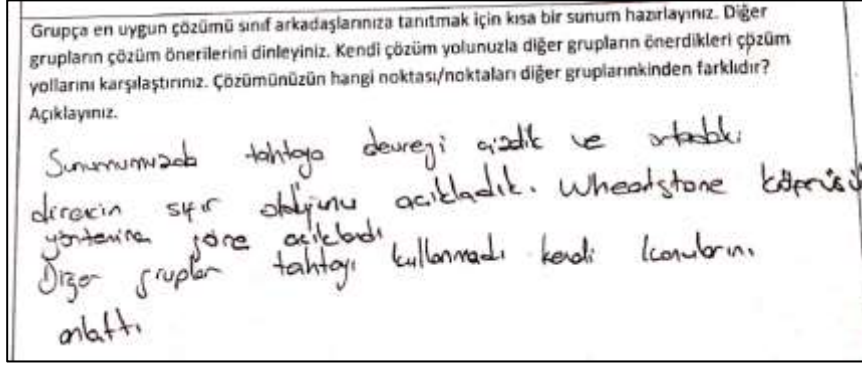 Grupça en uygun çözümü sınıf arkadaşlarınıza tanıtmak için kısa bir sunum hazırlayınız. Diğer
grupların çözüm önerilerini dinleyiniz. Kendi çözüm yolunuzla diğer grupların önerdikleri çözüm
yollarını karşılaştırınız. Çözümünüzün hangi noktası/noktaları diğer gruplarınkinden farklıdır?
Açıklayınız.
Sunumumuzda tahtaya devreyi çizdik ve ortadaki
direncin sıfır olduğunu açıkladık. Wheatstone köprüsü
yöntemine göre açıkladı
Diğer gruplar tahtayı kullanmadı kendi konularını
anlattı